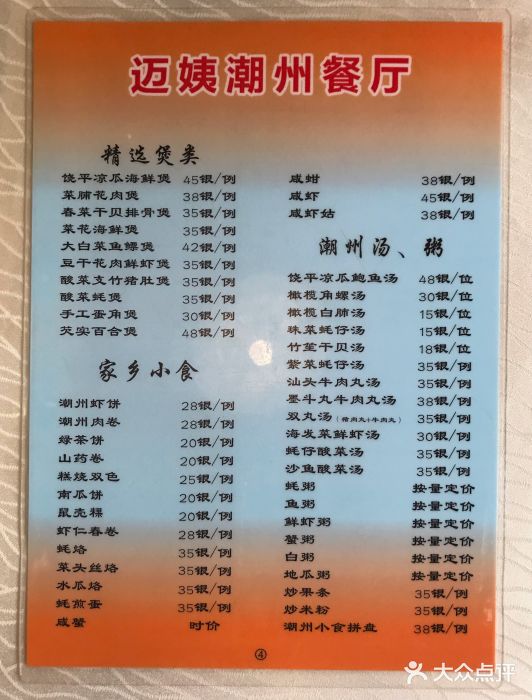 迈姨潮州餐厅
精选煲类
饶平凉瓜海鲜煲 45银/例
菜脯花肉煲 38银/例
春菜干贝排骨煲 35银/例
菜花海鲜煲 35银/例
大白菜鱼鳔煲 42银/例
豆干花肉鲜虾煲 35银/例
酸菜支竹猪肚煲 35银/例
酸菜蚝煲 35银/例
手工蛋角煲 30银/例
芡实百合煲 48银/例
家乡小食
潮州虾饼 28银/例
潮州肉卷 28银/例
绿茶饼 20银/例
山药卷 20银/例
糕烧双色 25银/例
南瓜饼 20银/例
鼠壳粿 20银/例
虾仁春卷 28银/例
蚝烙 35银/例
菜头丝烙 35银/例
水瓜烙 35银/例
蚝煎蛋 35银/例
咸蟹 时价
咸蚶 38银/例
咸虾 45银/例
咸虾姑 38银/例
潮州汤、粥
饶平凉瓜鲍鱼汤 48银/位
橄榄角螺汤 30银/位
橄榄白肺汤 15银/位
珠菜蚝仔汤 15银/位
竹笙干贝汤 18银/位
紫菜蚝仔汤 35银/例
汕头牛肉丸汤 35银/例
墨斗丸牛肉丸汤 38银/例
双丸汤（猪肉丸+牛肉丸） 35银/例
海发菜鲜虾汤 30银/例
蚝仔酸菜汤 35银/例
沙鱼酸菜汤 35银/例
蚝粥 按量定价
鱼粥 按量定价
鲜虾粥 按量定价
蟹粥 按量定价
白粥 按量定价
地瓜粥 按量定价
炒果条 35银/例
炒米粉 35银/例
潮州小食拼盘 38银/例
④
大众点评